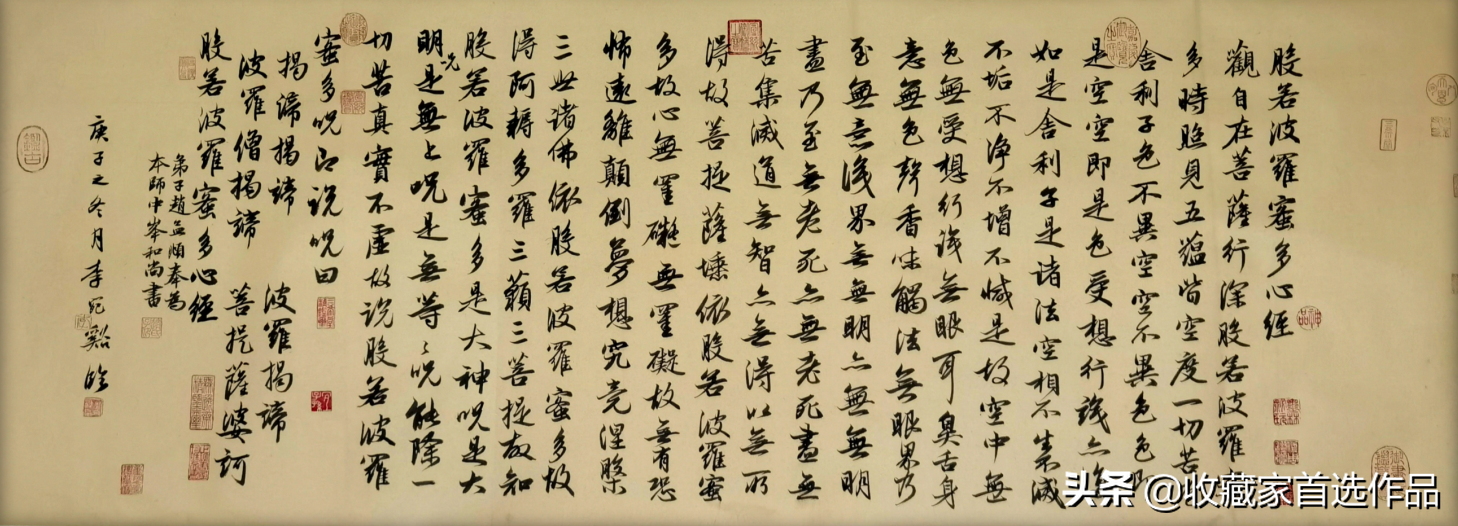 般若波羅蜜多心經
觀自在菩薩行深般若波羅
多時照見五蘊皆空度一切苦
舍利子色不異空空不異色色
是空空即是色受想行識亦
如是舍利子是諸法空相不生不滅
不垢不淨不增不減是故空中無
色無受想行識無眼耳鼻舌身
意無色聲香味觸法無眼界乃
至無意識界無無明亦無無明
盡乃至無老死亦無老死盡無
苦集滅道無智亦無得以無所
得故菩提薩埵依般若波羅蜜
多故心無罣礙無罣礙故無有恐
怖遠離顛倒夢想究竟涅槃
三世諸佛依般若波羅蜜多故
得阿耨多羅三藐三菩提故知
般若波羅蜜多是大神呪是大
明呪是無上呪是無等々呪能除一
切苦真實不虛故說般若波羅
蜜多呪即說呪曰
揭諦揭諦 波羅揭諦
波羅僧揭諦 菩提薩婆訶
般若波羅蜜多心經
弟子趙孟頫奉為
本師中峯和尚書
庚子之冬月李宛谿臨
头条 @收藏家首选作品